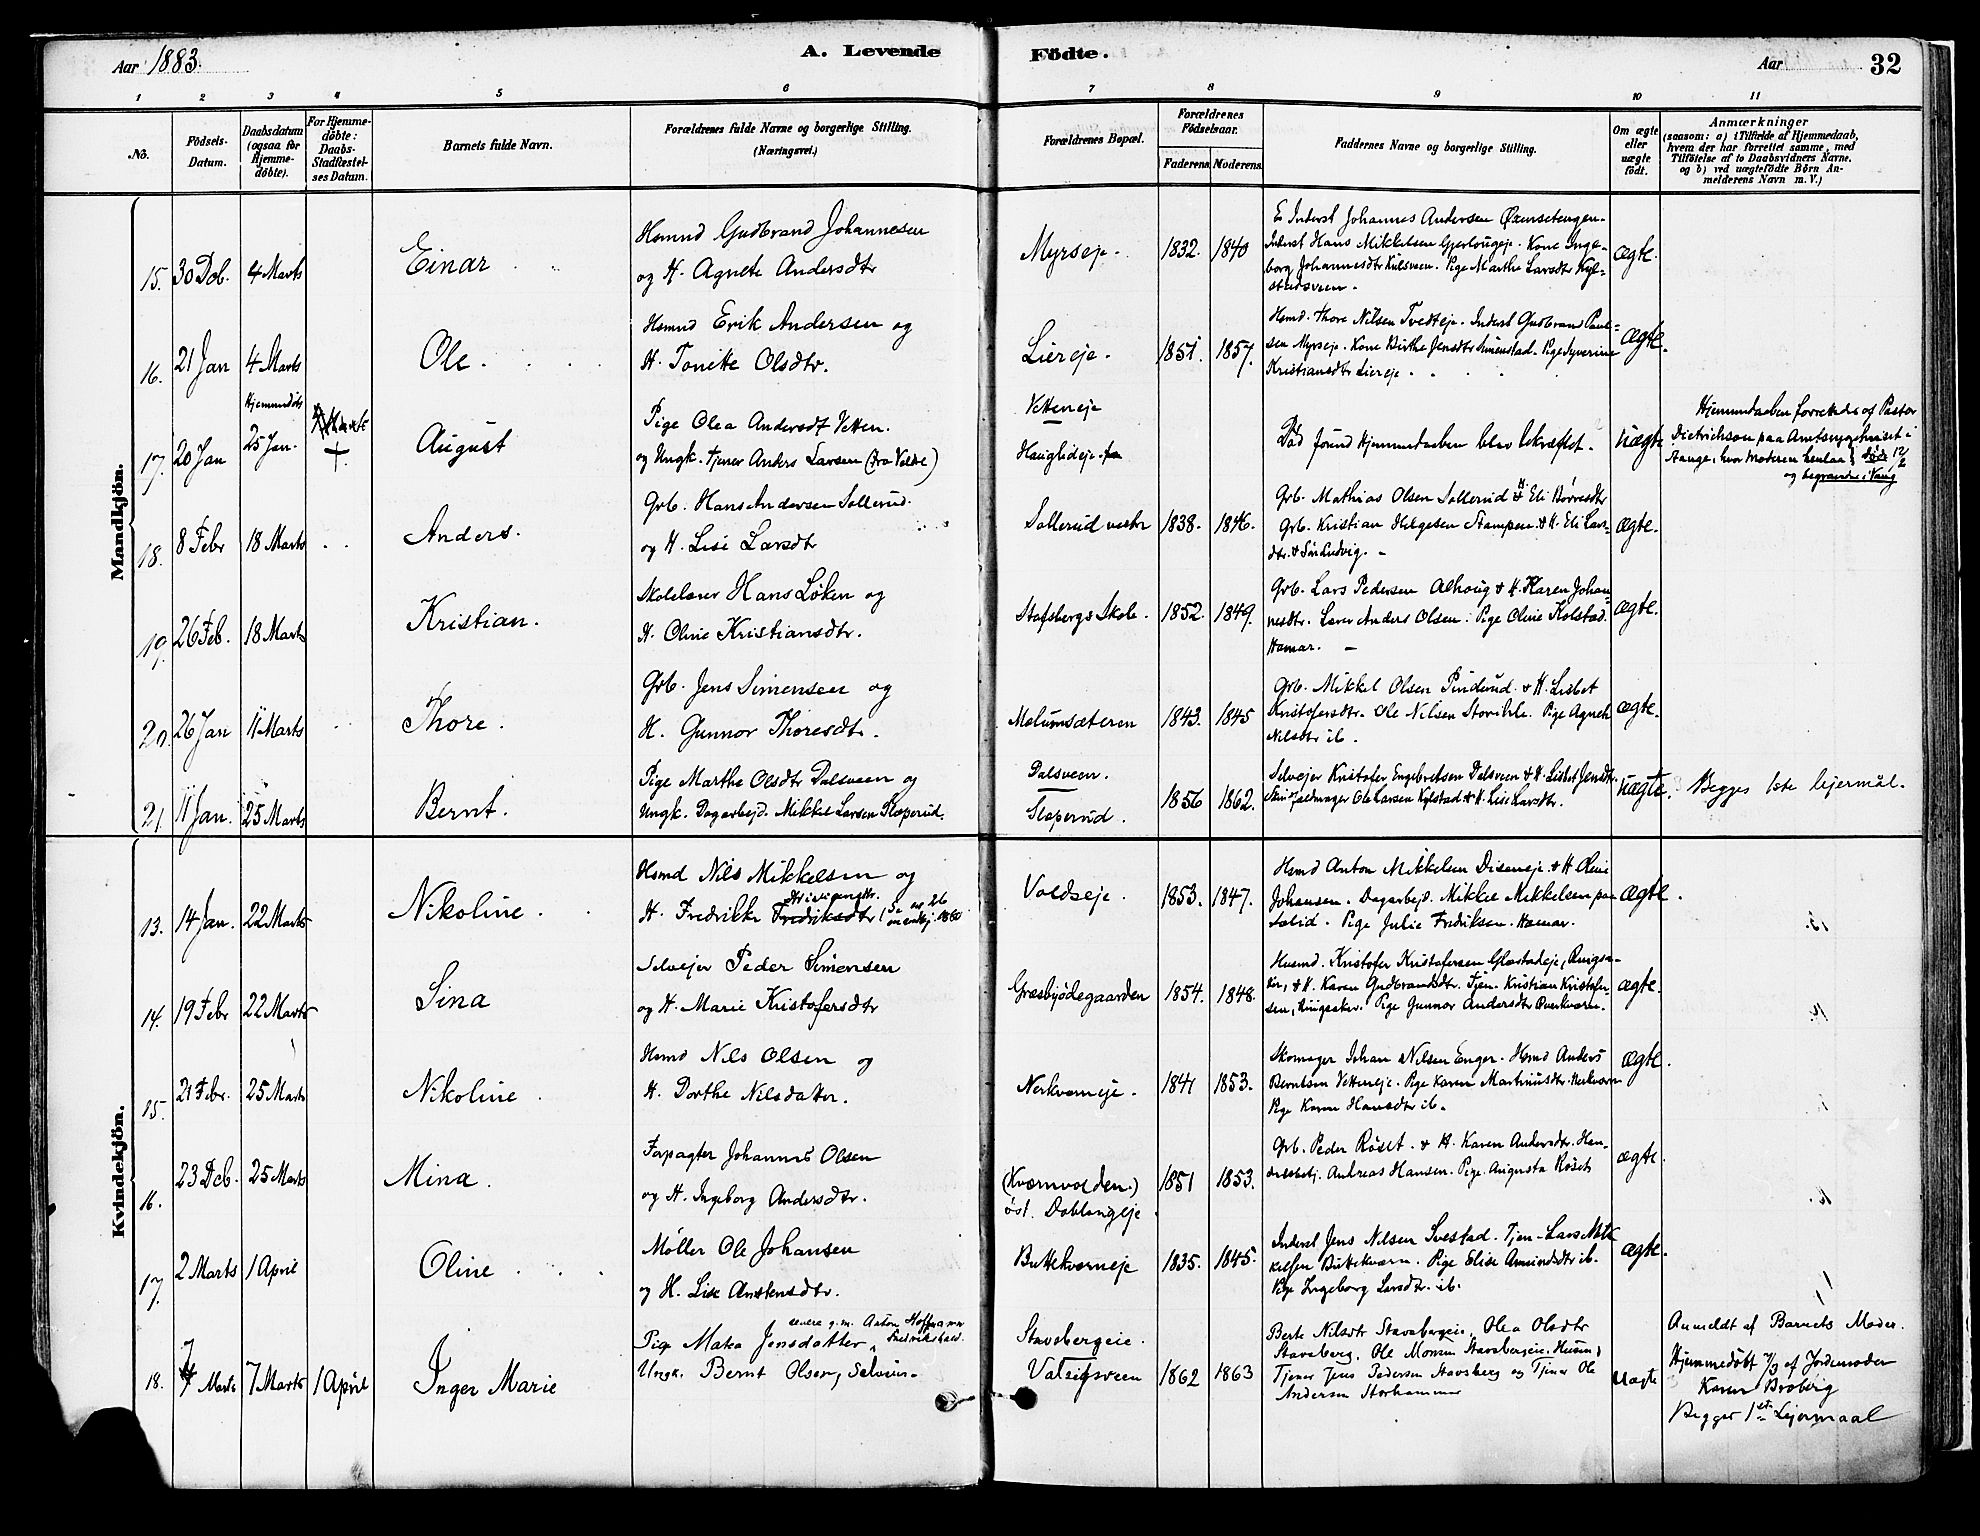 Aar 1883.
A. Levende Fødte.
Aar
32
1 2 3 4 5 6 7 8 9 10 11
No.
Födsels-
Datum.
Daabsdatum
(ogsaa for
Hjemme-
döbte).
For Hjemme-
döbte:
Daabs-
Stadfæstel-
ses Datum.
Barnets fulde Navn.
Forældrenes fulde Navne og borgerlige Stilling.
(Næringsvei.)
Forældrenes Bopæl.
Forældrenes
Födselsaar.
Faderens. Moderens.
Faddernes Navne og borgerlige Stilling.
Om ægte
eller
uægte
födt.
Anmærkninger
(saasom: a) i Tilfælde af Hjemmedaab,
hvem der har forrettet samme, med
Tilföielse af to Daabsvidners Navne,
og b) ved uægtefödte Börn An-
melderens Navn m. V.)
Mandkjön.
15. 30 Dcb. 4 Marts
Einar
Hsmnd Gudbrand Johannesen
og H. Agnete Andersdtr
Myrseje.
1832. 1840
E. Inderst Johannes Andersen
Inderst Hans Mikkelsen Kone Inge-
borg Johannesdtr Pige Marthe Larsdtr Kyl-
stadsveen.
ægte.
16. 21 Jan 4 Marts
Ole.
Hsmnd Erik Andersen og
H. Tonette Olsdtr.
Liereje.
1851 1857.
Hsmd. Thore Nilsen Tvedteje. Inderst Gudbrand Paul-
sen Myrseje. Kone Birthe Jensdtr Simenstad. Pige Syverine
Kristiansdtr Liereje.
ægte.
17. 20 Jan
Hjemmedøbt
25 Jan.
+
August
Pige Olea Andersdt Vetten.
og Ungk. Tjener Anders Larsen (fra Velde)
Vetteneje
Hauglideje
Død førend Hjemmedaaben blev bekræftet.
uægte
Hjemmedaaben forrettedes af Pastor
Dietrichson paa Amtssygehuset i
Stange, hvor Moderen henlaa; døde 12/2
og begravedes i Vang
18. 8 Febr 18 Marts
Anders.
Grb. Hans Andersen Sollerud
og H. Lise Larsdtr
Sollerud vestre
1838. 1846.
Grb. Mathias Olsen Sollerud & H. Eli Børresdtr
Grb. Kristian Helgesen Stampen & H. Eli Lars-
dtr. & Søn Ludvig. -
ægte.
19. 26 Feb. 18 Marts
Kristian.
Skolelærer Hans Løken og
H. Oline Kristiansdtr.
Stafsbergs Skole.
1852. 1849.
Grb. Lars Pedersen Alhoug & H. Karen Johan-
nesdtr. Lærer Anders Olsen. Pige Oline Kolstad.
Hamar. -
ægte.
20. 26 Jan 11 Marts
Thore.
Grb. Jens Simensen og
H. Gunnor Thoresdtr.
Melumsæteren
1843. 1845
Grb. Mikkel Olsen Pinderud. & H. Lisbet
Kristofersdtr. Ole Nilsen Storihle. Pige Agnete
Nilsdtr ib.
ægte.
21. 11 Jan. 25 Marts
Bernt.
Pige Marthe Olsdtr Dalsveen og
Ungk. Dagarbejd. Mikkel Larsen Slaperud.
Dalsveen.
Slaperud.
1856 1862.
Selvejer Kristofer Engebretsen Dalsveen & H. Lisbet Jensdtr.
Ole Larsen Kylstad & H. Lise Larsdtr.
uægte.
Begges 1ste lejermål.
Kvindekjön.
13. 14 Jan. 22 Marts
Nikoline
Hsmd Nils Mikkelsen og
Kristiansdtr.
H. Fredrikke Fredriksdtr
Voldseje.
1853. 1847.
Hsmd Anton Mikkelsen Diseneje & H. Oline
Johansen. Dagarbejd. Mikkel Mikkelsen paa
Solid. Pige Julie Fredriksen. Hamar.
ægte.
14. 19 Febr 22 Marts
Sina
Selvejer Peder Simensen
og H. Marie Kristofersdtr
Græsbyødegaarden
1854. 1848.
Husmd. Kristofer Kristofersen Glæstadeje, Ringsa-
ker, & H. Karen Gudbrandsdtr. Tjen. Kristian Kristofer-
sen, Ringsaker. Pige Gunnor Andersdtr Overkværn.
ægte.
15. 21 Febr. 25 Marts
Nikoline
Hsmd Nils Olsen og
H. Dorthe Nilsdatter.
Nerkværneje.
1841 1853.
Skomager Johan Nilsen Enger. Hsmd Anders
Berntsen Vetteneje. Pige Karen Martinusdtr. Nerkværn
Pige Karen Hansdtr ib.
ægte.
16. 23 Dcb. 25 Marts
Mina.
Forpagter Johannes Olsen
og H. Ingeborg Andersdtr.
(Kværnvolden.)
øst. Doblougeje.
1851 1853.
Grb. Peder Røset. & H. Karen Andersdtr. Han-
delsbetj. Andreas Hansen. Pige Augusta Røset
ægte.
17. 2 Marts 1 April
Oline
Møller Ole Johansen
og H. Lise Anstensdtr.
Buttekværneje
1835. 1845.
Inderst Jens Nilsen Svestad. Tjen. Lars Mik-
kelsen Buttekværn. Pige Elise Amundsdtr ib.
Pige Ingeborg Larsdtr. ib.
ægte.
18. 7 Marts 7 Marts 1 April
Inger Marie
senere g.m. Anton Hoffmann
Fredrikshald.
Pige Mata Jensdatter,
Ungk. Bernt Olsen, Selveier-
Stavsbergeie.
Valseigsveen
1862 1863
Berte Nilsdtr Stavsbergeie, Olea Olsdtr
Stavsberg, Ole Monsen Stavsbergeie, Husm;
Tjener Jens Pedersen Stavsberg og Tjener Ole
Andersen Storhammer
uægte
Anmeldt af Barnets Moder.
Hjemmedøbt 7/3 af Jordemoder
Karen Broberg
Begges 1ste Lejermaal